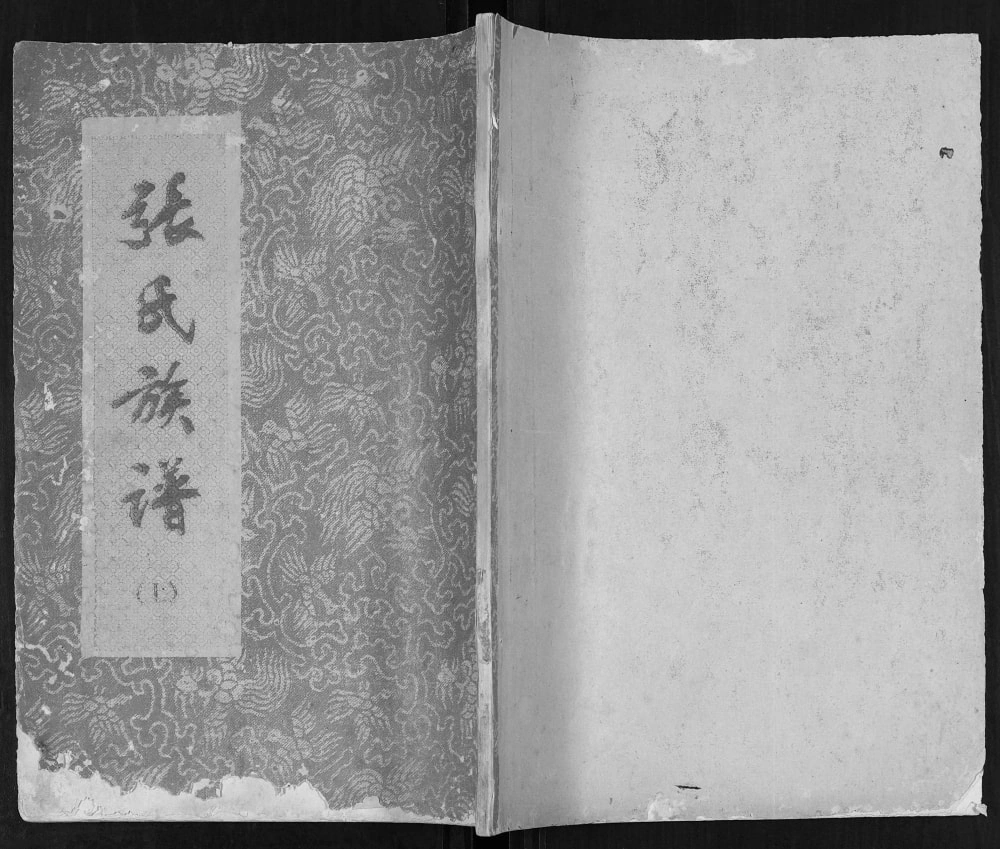 張氏族譜
(上)